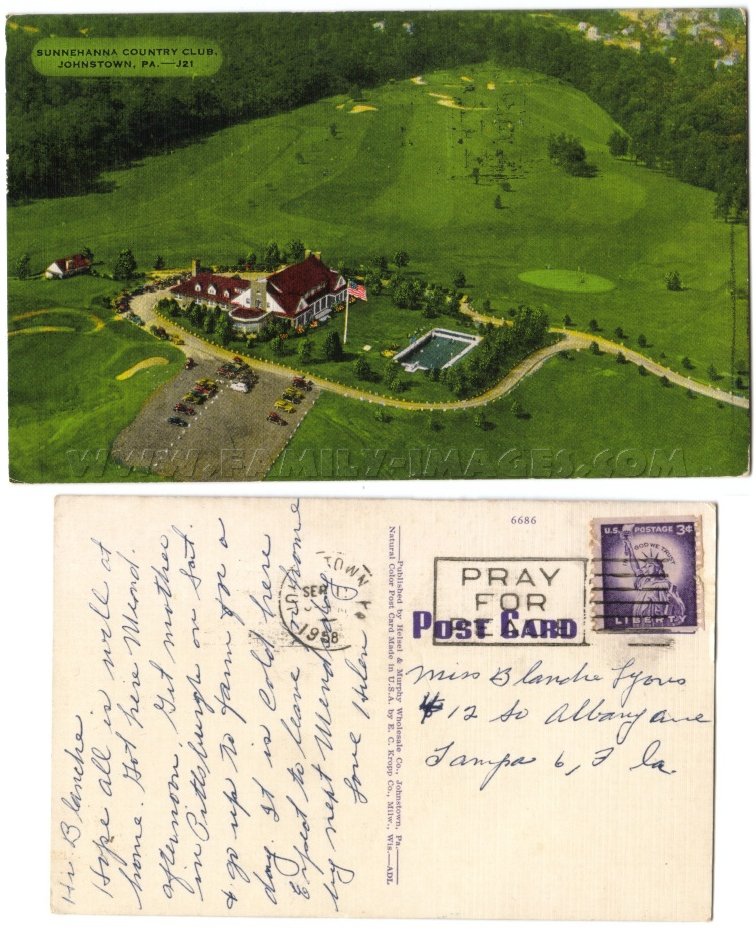 SUNNEHANNA COUNTRY CLUB,
JOHNSTOWN, PA.—J21
WWW.FAMILY-IMAGES.COM
6686
U.S. POSTAGE 3¢
IN GOD WE TRUST
LIBERTY
TOWN PA
SEP
1958
PRAY
FOR
POST CARD
Miss Blanche Lyons
#12 So Albany ave
Tampa 6, Fla.
Published by Heisel & Murphy Wholesale Co., Johnstown, Pa.
Natural Color Post Card Made in U.S.A. by E. C. Kropp Co., Milw., Wis.—ADL
Hi Blanche
Hope all is well at
home. Got here Wend.
afternoon. Get mother
in Pittsburgh on Sat.
& go up to farm for a
day. It is cold here
Expect to leave for home
by next Wend
Love Helen